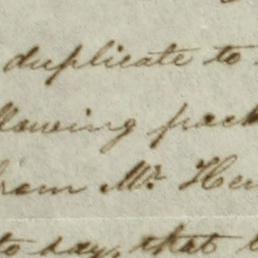 duplicate to
llowing pack
from Mr. Hen
to say, that